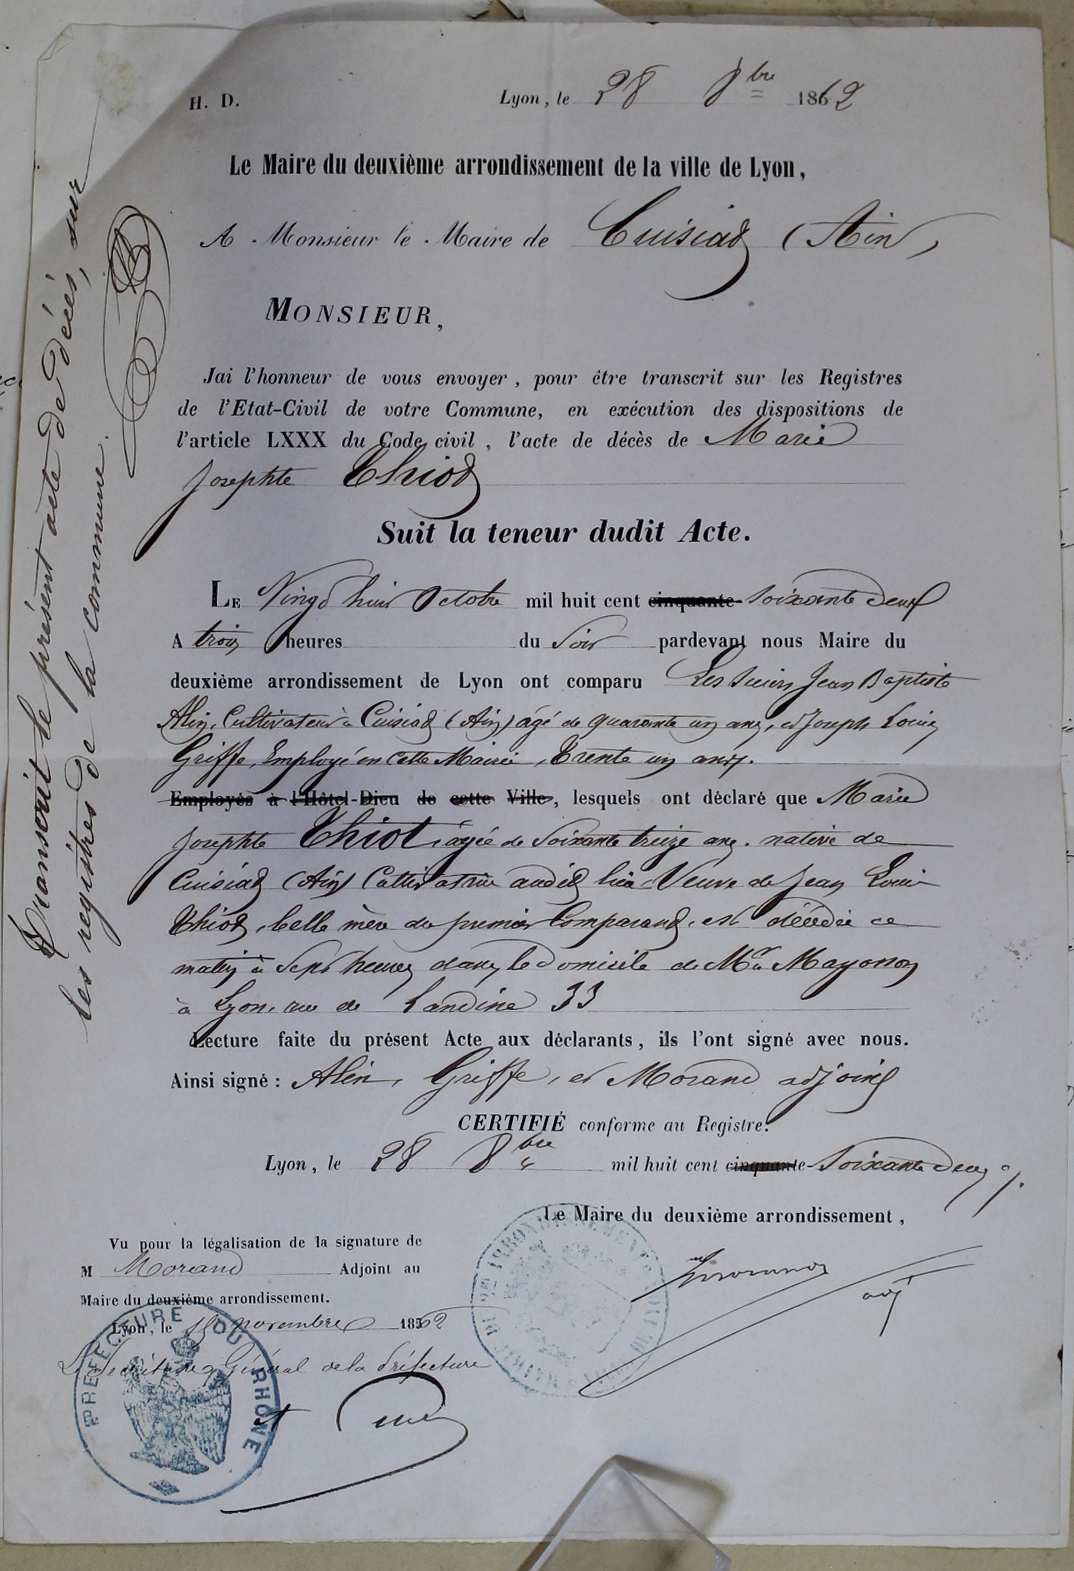 H. D.
Lyon, le 28 8bre 1862
Le Maire du deuxième arrondissement de la ville de Lyon,
A Monsieur le Maire de Cuisiat (Ain)
MONSIEUR,
Jai l'honneur de vous envoyer, pour être transcrit sur les Registres
de l'Etat-Civil de votre Commune, en exécution des dispositions de
l'article LXXX du Code civil, l'acte de décès de Marie
Josephte Thiot
Suit la teneur dudit Acte.
LE Vingt huit Octobre mil huit cent cinquante- Soixante deux
A trois heures du Soir pardevant nous Maire du
deuxième arrondissement de Lyon ont comparu Les Sieurs Jean Baptiste
Alin, Cultivateur à Cuisiat (Ain) âgé de quarante un ans, et Joseph Louis
Griffe, Employé en cette Mairie, Trente un ans.
Employés à l'Hôtel-Dieu de cette Ville, lesquels ont déclaré que Marie
Josephte Thiot, âgée de Soixante treize ans, native de
Cuisiat (Ain) Cultivatrice audit lieu, Veuve de Jean Louis
Thiot, belle mère du premier Comparant, est décédée ce
matin à Sept heures dans le domicile de Mr
à Lyon, rue de 33
Lecture faite du présent Acte aux déclarants, ils l'ont signé avec nous.
Ainsi signé : Alin, Griffe, et Morand adjoint
CERTIFIÉ conforme au Registre.
Lyon, le 28 8bre mil huit cent cinquante- Soixante deux
Le Maire du deuxième arrondissement,
adj
Vu pour la légalisation de la signature de
M Morand Adjoint au
Maire du deuxième arrondissement.
Lyon, le novembre 1862
Le Secrétaire Général de la Préfecture
PRÉFECTURE DU RHÔNE
Transcrit le présent acte de décès, sur
les registres de la commune.